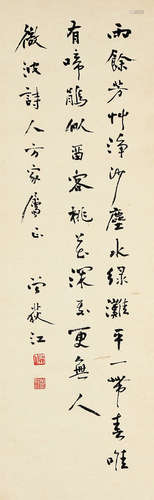 雨餘芳艸淨沙塵水綠灘平一帶春唯
有啼鵑似留客桃花深處更無人
微波詩人方家屬正
曾荻江